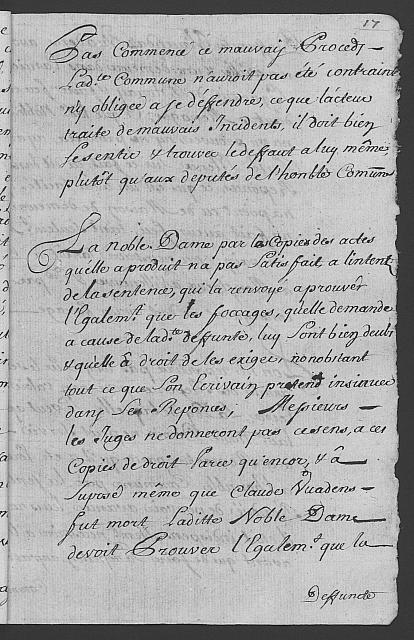 17
Pas Commencé ce mauvais Procedz —
Lad.te Commune n'auroit pas été contrainte
n'y obligée a se deffendre, ce que l'acteur
traite de mauvais Incidents, il doit bien
se sentir & trouver le deffaut a luy même,
plutôt qu'aux deputés de l'honble Comune
La noble Dame par les Copies des actes
qu'elle a produit n'a pas Satisfait a l'intent
de la sentence, qui la renvoyé a prouvér
l'Egalem.t que les focages, qu'elle demande
a cause de lad.te deffunte, luy sont bien deubs
& qu'elle a droit de les exiger, nonobstant
tout ce que Son Ecrivain pretend insinuer
dans Ses Reponces, Messieurs —
les Juges ne donneront pas ce sens, a ces
Copies de droit Parce qu'encor, & a
Suposé même que Claude Vuadens —
fut mort, Laditte Noble Dame
devoit Prouver l'Egalem.t que la
Deffuncte